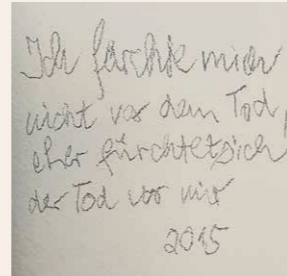 Ich fürchte mich
nicht vor dem Tod,
eher fürchtet sich
der Tod vor mir
2015